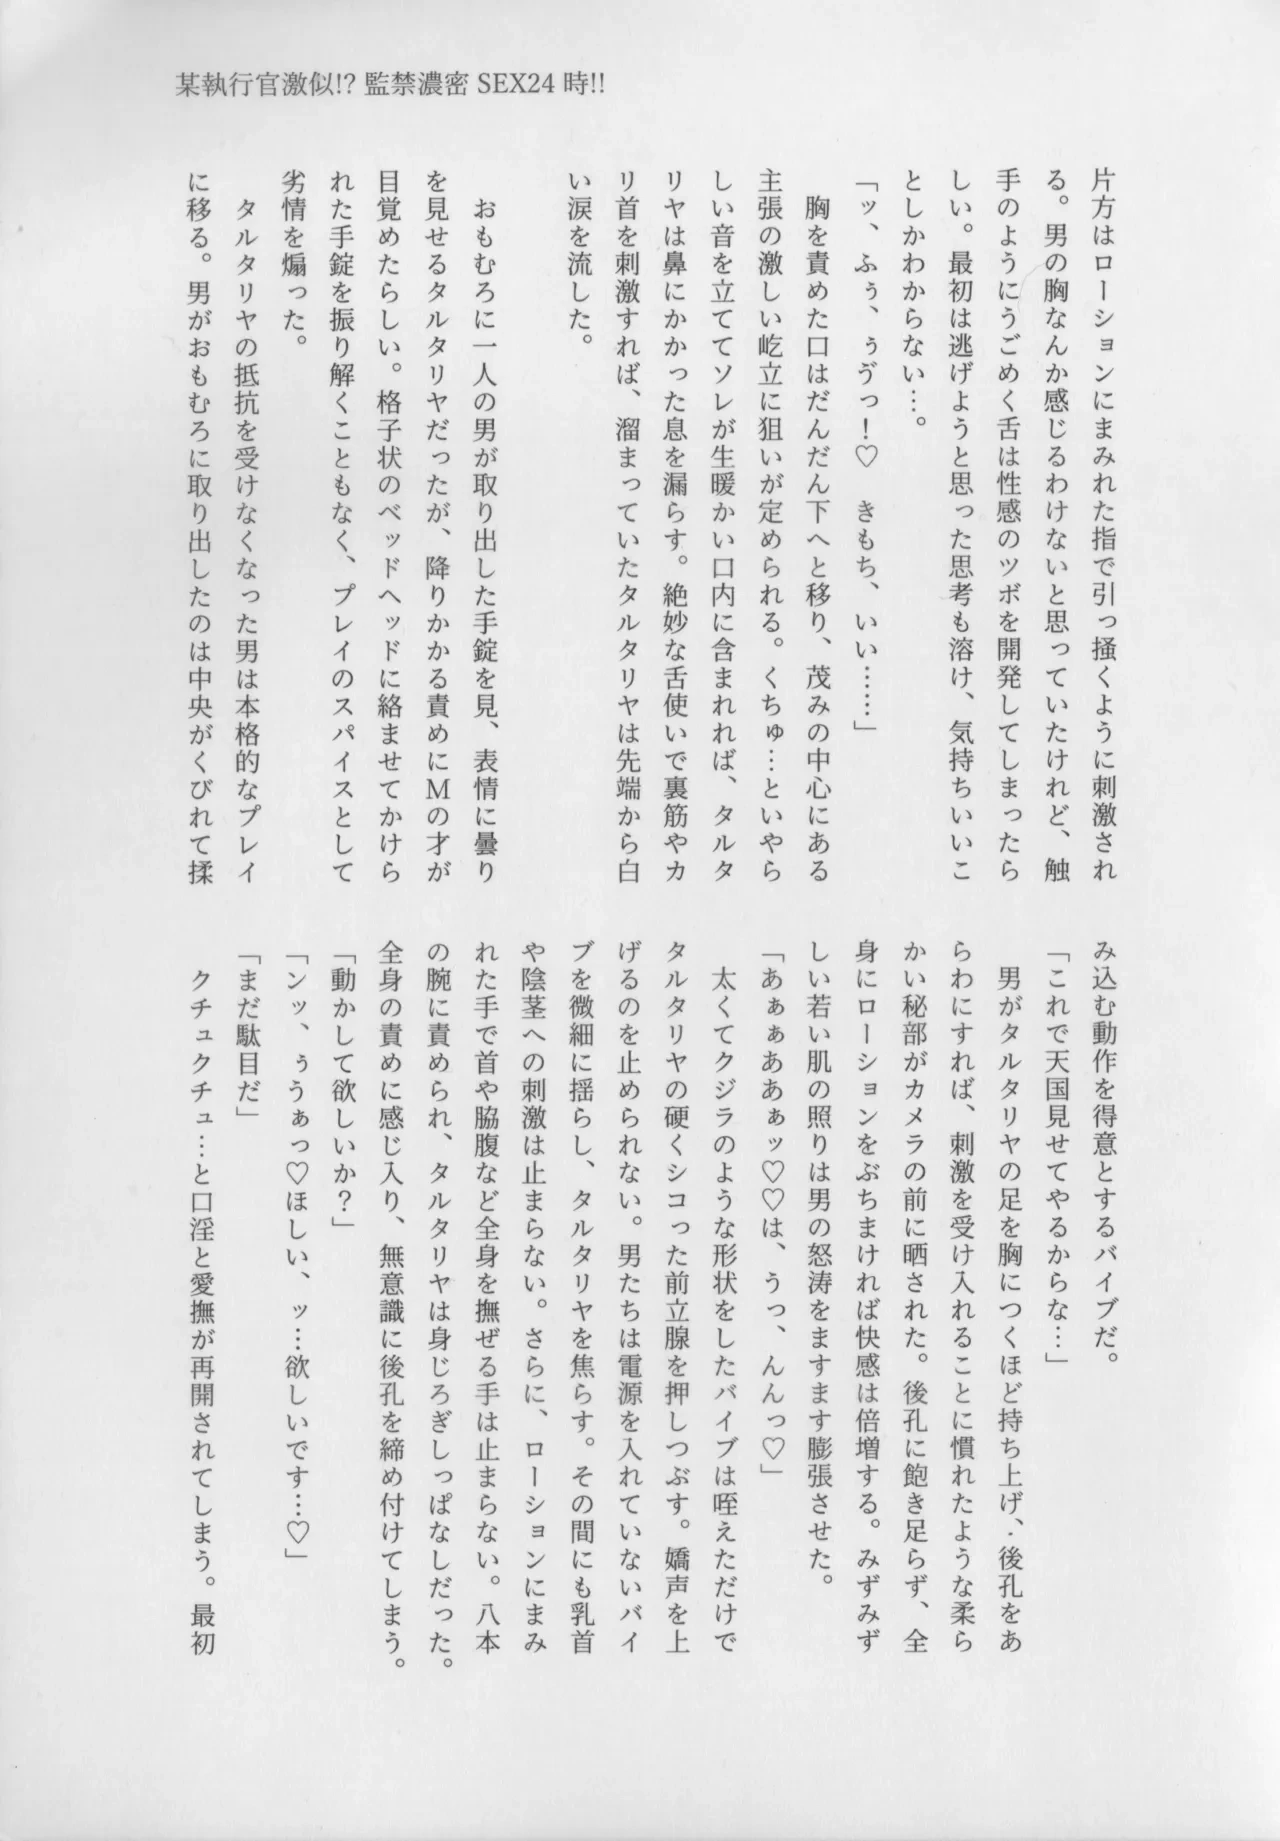 某執行官激似!? 監禁濃密 SEX24 時!!
片方はローションにまみれた指で引っ掻くように刺激され
る。男の胸なんか感じるわけないと思っていたけれど、触
手のようにうごめく舌は性感のツボを開発してしまったら
しい。最初は逃げようと思った思考も溶け、気持ちいいこ
としかわからない…。
「ッ、ふぅ、ぅゔっ！♡　きもち、いい……」
　胸を責めた口はだんだん下へと移り、茂みの中心にある
主張の激しい屹立に狙いが定められる。くちゅ…といやら
しい音を立ててソレが生暖かい口内に含まれれば、タルタ
リヤは鼻にかかった息を漏らす。絶妙な舌使いで裏筋やカ
リ首を刺激すれば、溜まっていたタルタリヤは先端から白
い涙を流した。
　おもむろに一人の男が取り出した手錠を見、表情に曇り
を見せるタルタリヤだったが、降りかかる責めにMの才が
目覚めたらしい。格子状のベッドヘッドに絡ませてかけら
れた手錠を振り解くこともなく、プレイのスパイスとして
劣情を煽った。
　タルタリヤの抵抗を受けなくなった男は本格的なプレイ
に移る。男がおもむろに取り出したのは中央がくびれて揉
み込む動作を得意とするバイブだ。
「これで天国見せてやるからな…」
　男がタルタリヤの足を胸につくほど持ち上げ、後孔をあ
らわにすれば、刺激を受け入れることに慣れたような柔ら
かい秘部がカメラの前に晒された。後孔に飽き足らず、全
身にローションをぶちまければ快感は倍増する。みずみず
しい若い肌の照りは男の怒涛をますます膨張させた。
「あぁぁああぁッ♡♡は、うっ、んんっ♡」
　太くてクジラのような形状をしたバイブは咥えただけで
タルタリヤの硬くシコった前立腺を押しつぶす。嬌声を上
げるのを止められない。男たちは電源を入れていないバイ
ブを微細に揺らし、タルタリヤを焦らす。その間にも乳首
や陰茎への刺激は止まらない。さらに、ローションにまみ
れた手で首や脇腹など全身を撫ぜる手は止まらない。八本
の腕に責められ、タルタリヤは身じろぎしっぱなしだった。
全身の責めに感じ入り、無意識に後孔を締め付けてしまう。
「動かして欲しいか？」
「ンッ、ぅうぁっ♡ほしい、ッ…欲しいです…♡」
「まだ駄目だ」
　クチュクチュ…と口淫と愛撫が再開されてしまう。最初